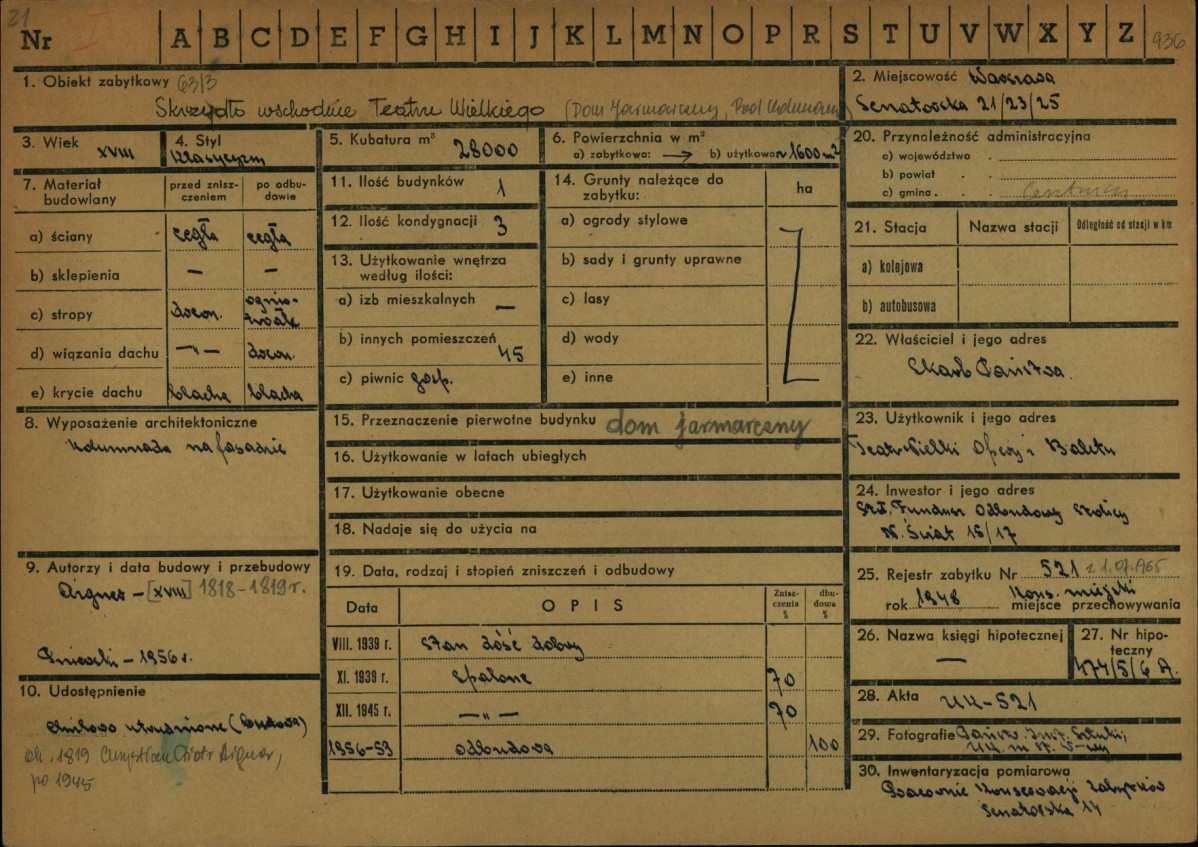 21
Nr I A B C D E F G H I J K L M N O P R S T U V W X Y Z 936
1. Obiekt zabytkowy 63/3
Skrzydło wschodnie Teatru Wielkiego (Dom Jarmarczny, Pod Kolumnami)
2. Miejscowość Warszawa
Senatorska 21/23/25
3. Wiek XVIII
4. Styl
Klasycyzm
5. Kubatura m³ 28000
6. Powierzchnia w m²
a) zabytkowa: → b) użytkowa 1600 m²
20. Przynależność administracyjna
a) województwo
b) powiat
c) gmina Centrum
7. Materiał budowlany
przed zniszczeniem
po odbudowie
a) ściany cegła cegła
b) sklepienia — —
c) stropy drewn. ognio-
trwałe
d) wiązania dachu —"— drewn.
e) krycie dachu blacha blacha
11. Ilość budynków 1
12. Ilość kondygnacji 3
13. Użytkowanie wnętrza
według ilości:
a) izb mieszkalnych —
b) innych pomieszczeń 45
c) piwnic gosp.
14. Grunty należące do
zabytku: ha
a) ogrody stylowe
b) sady i grunty uprawne
c) lasy
d) wody
e) inne
21. Stacja Nazwa stacji Odległość od stacji w km
a) kolejowa
b) autobusowa
22. Właściciel i jego adres
Skarb Państwa.
8. Wyposażenie architektoniczne
Kolumnada na fasadzie
15. Przeznaczenie pierwotne budynku dom jarmarczny
16. Użytkowanie w latach ubiegłych
17. Użytkowanie obecne
18. Nadaje się do użycia na
23. Użytkownik i jego adres
Teatr Wielki Opery i Baletu
24. Inwestor i jego adres
Fundusz Odbudowy Stolicy
N. Świat 15/17
9. Autorzy i data budowy i przebudowy
Aigner – [XVIII] 1818–1819 r.
Pniewski – 1956 r.
19. Data, rodzaj i stopień zniszczeń i odbudowy
Data OPIS Zniszczenia % dbudowa %
VIII. 1939 r. Stan dość dobry
XI. 1939 r. Spalone 70
XII. 1945 r. —"— 70
1956-53 odbudowa 100
25. Rejestr zabytku Nr 521 z 1.07.965
rok 1948 Kons. miejski
miejsce przechowywania
26. Nazwa księgi hipotecznej
—
27. Nr hipoteczny
474/5/6 A.
10. Udostępnienie
chwilowo utrudnione (budowa)
ok. 1819 Chrystian Piotr Aigner,
po 1945
28. Akta UK-521
29. Fotografie Państw. Inst. Sztuki,
30. Inwentaryzacja pomiarowa
Pracownie Konserwacji Zabytków
Senatorska 14